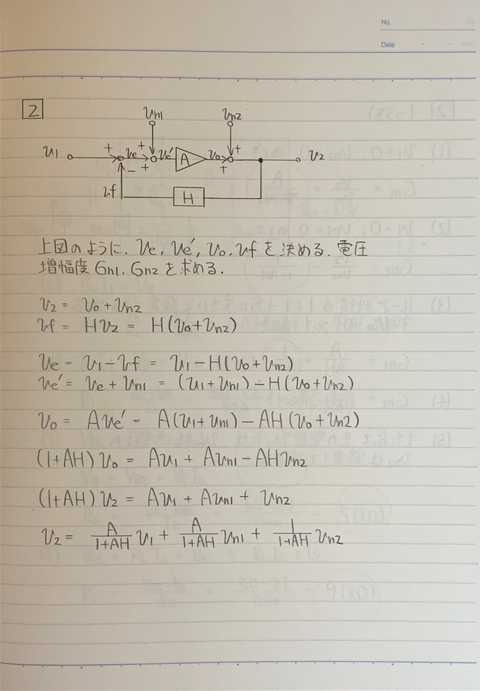 No.
Date
2
vn1 vn2
v1 + ve + ve' A vo + v2
− + +
vf H
上図のように、ve, ve', vo, vfを決める. 電圧
増幅度 Gn1, Gn2を求める.
v2 = vo + vn2
vf = Hv2 = H(vo+vn2)
ve = v1 − vf = v1 − H(vo+vn2)
ve' = ve + vn1 = (v1+vn1) − H(vo+vn2)
vo = Ave' = A(v1+vn1) − AH(vo+vn2)
(1+AH) vo = Av1 + Avn1 − AHvn2
(1+AH) v2 = Av1 + Avn1 + vn2
v2 = A/(1+AH) v1 + A/(1+AH) vn1 + 1/(1+AH) vn2